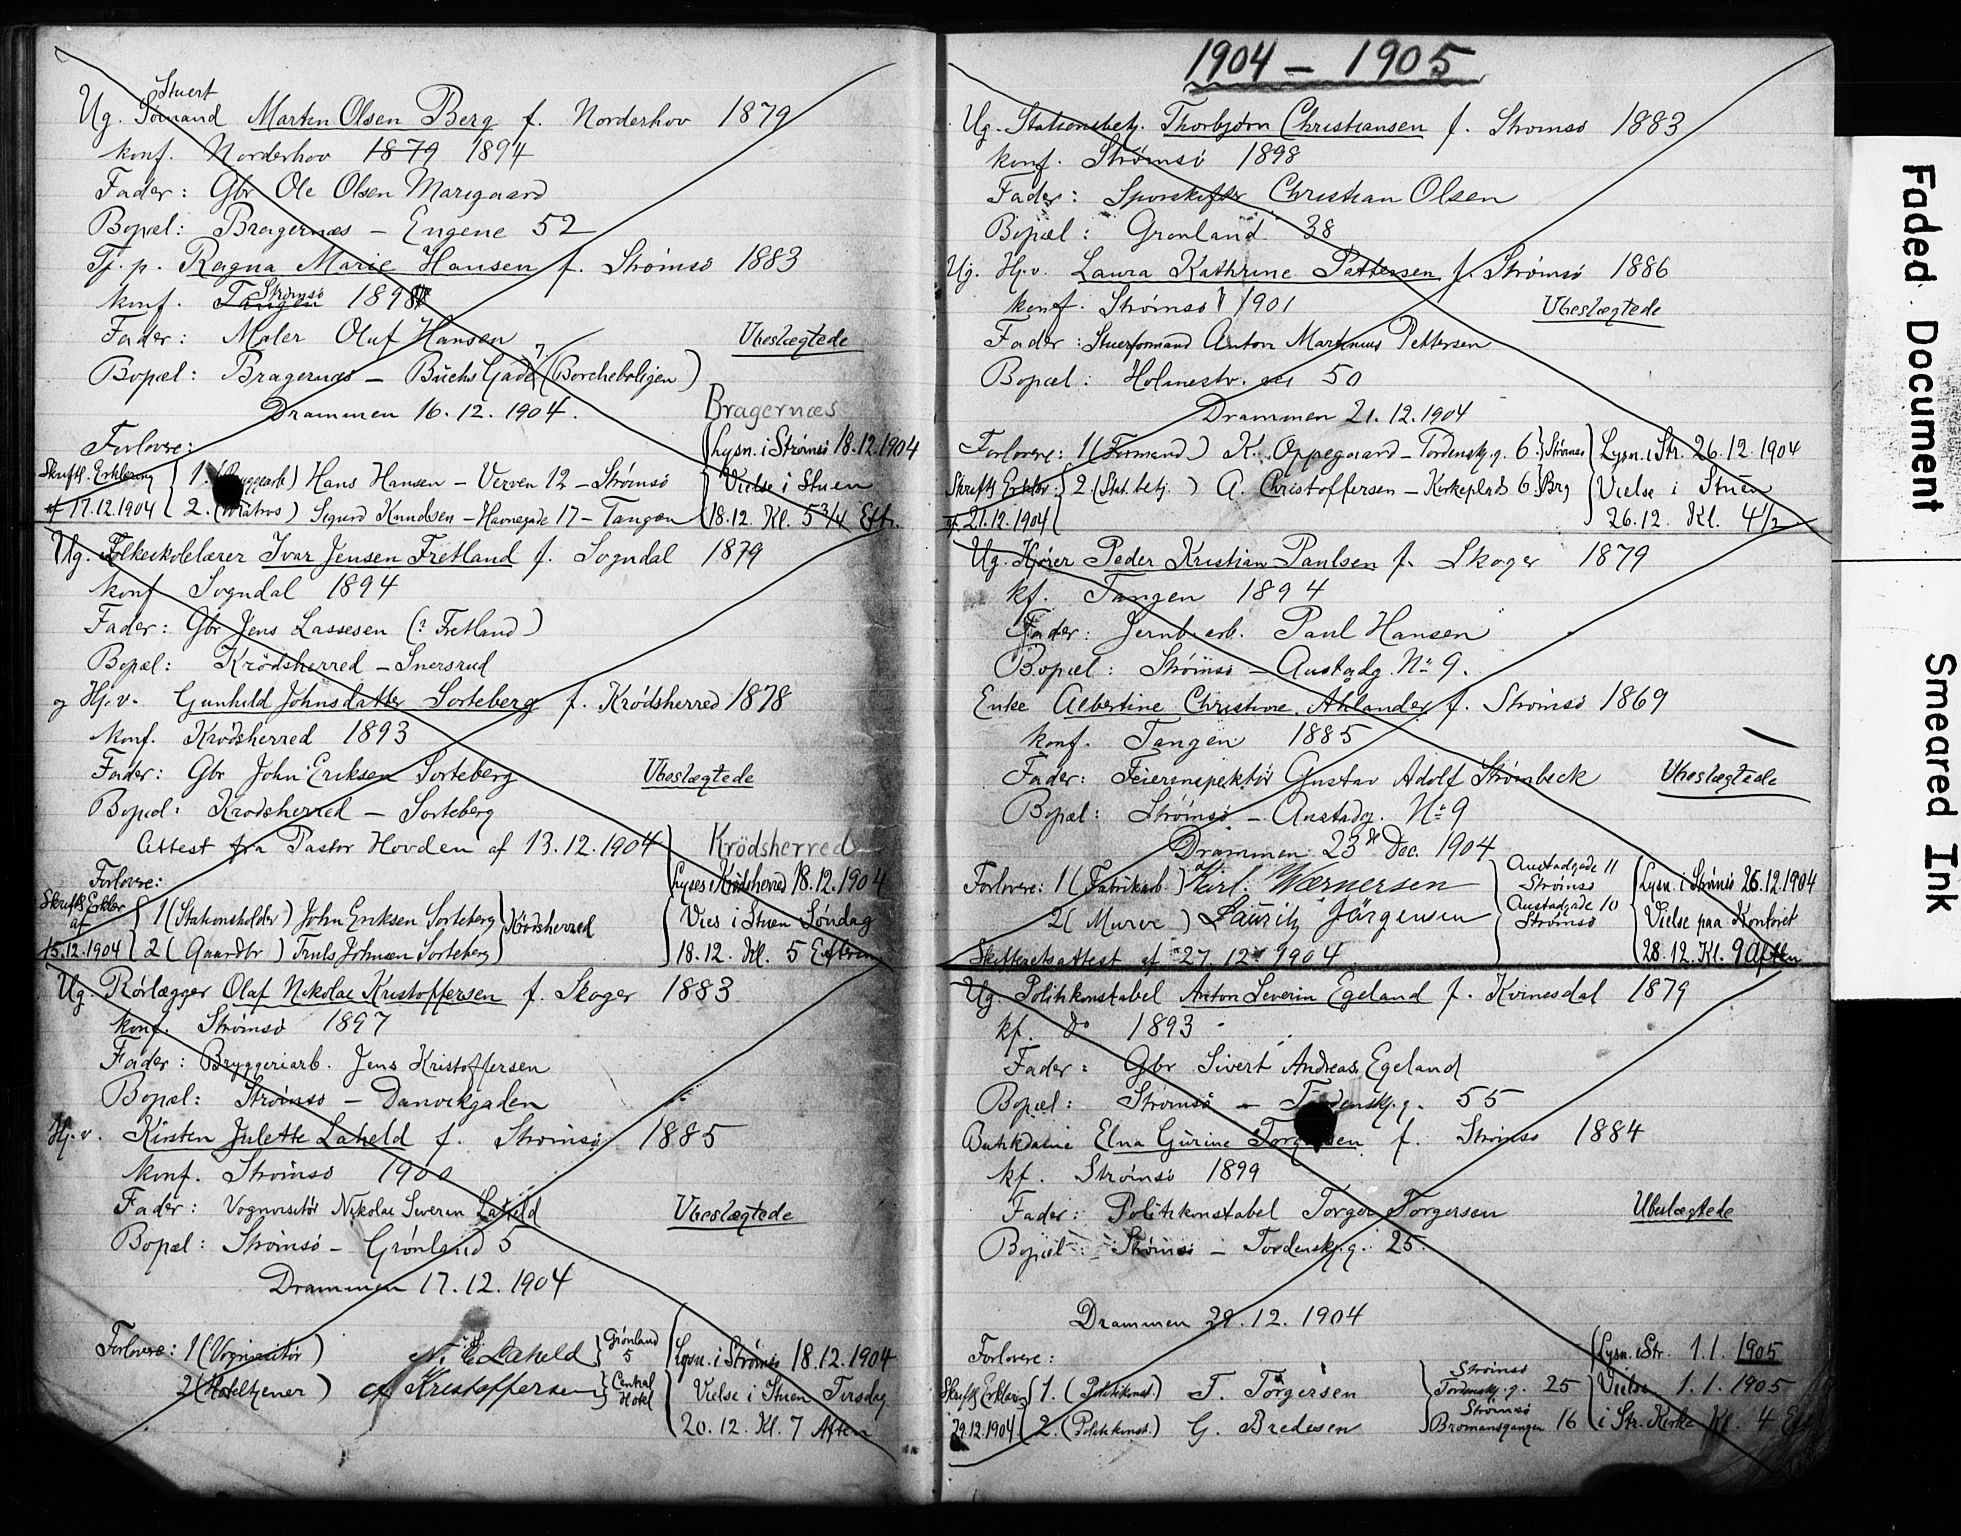 Stuert
Ug. Sømand Marten Olsen Berg f. Norderhov 1879
konf. Norderhov 1879 1894
Fader: Gbr Ole Olsen Marigaard
Bopæl: Bragernæs – Engene 52
Tj. p. Ragna Marie Hansen f. Strømsø 1883
Strømsø
konf. Tangen 1898
Fader: Maler Oluf Hansen
Ubeslægtede
Bopæl: Bragernæs – Buchs Gade 7 (Borcheboligen)
Drammen 16.12.1904.
Bragernæs
Forlovere:
Lysn. i Strømsø 18.12.1904
Skriftl. Erklæring 1. (Byggearb) Hans Hansen – Verven 12 – Strømsø
Vielse i Stuen
af 17.12.1904 2. (Matros) Sigurd Knudsen – Havnegade 17 – Tangen
18.12. Kl. 5 3/4 Eft.
Ug. Folkeskolelærer Ivar Jensen Fretland f. Sogndal 1879
konf Sogndal 1894
Fader: Gbr Jens Lassesen (? Fretland)
Bopæl: Krödsherred – Snersrud
og Hj.v. Gunhild Johnsdatter Sorteberg f. Krödsherred 1878
konf. Krödsherred 1893
Fader: Gbr John Eriksen Sorteberg
Ubeslægtede
Bopæl: Krödsherred – Sorteberg
Attest fra Pastor Hovden af 13.12.1904
Krödsherred
Forlovere:
Lyses i Krödsherred 18.12.1904
Skriftl. Erklær 1 (Stationsholder) John Eriksen Sorteberg
af
Krödsherred
Vies i Stuen Söndag
15.12.1904 2 (Gaardbr) Truls Johnsen Sorteberg
18.12. Kl. 5 Efterm
Ug. Rörlægger Olaf Nikolai Kristoffersen f. Skoger 1883
konf. Strömsö 1897
Fader: Bryggeriarb. Jens Kristoffersen
Bopæl: Strömsö – Danvikgaden
Hj.v. Kirsten Julette Laheld f. Strömsö 1885
konf. Strömsö 1900
Fader: Vognvisitör Nikolai Severin Laheld
Ubeslægtede
Bopæl: Strömsö – Grönland 5
Drammen 17.12.1904
Forlovere: 1 (Vognvisitör) N. S. Laheld Grönland 5
Lysn. i Strömsö 18.12.1904
2 (Hoteltjener) Kristoffersen Central Hotel
Vielse i Stuen Tirsdag
20.12. Kl. 7 Aften
1904 – 1905
Ug. Stationsbetj. Thorbjørn Christiansen f. Strömsö 1883
konf. Strömsö 1898
Fader: Sporskifter Christian Olsen
Bopæl: Grønland 38
Ug. Hj.v. Laura Kathrine Pettersen f. Strömsö 1886
konf. Strømsø 1901
Ubeslægtede
Fader: Stuerformand Anton Martinius Pettersen
Bopæl: Holmestr. 50
Drammen 21.12.1904
Forlovere: 1 (Formand) K. Oppegaard – Tordenskj.g. 6. Strømsø
Lysn. i Str. 26.12.1904
Skriftl. Erklær. 2 (Stat. betj.) A. Christoffersen – Kirkeplads 6. Brg
Vielse i Stuen
af 21.12.1904
26.12. Kl. 4 1/2
Ug. Kjører Peder Kristian Paulsen f. Skoger 1879
kf. Tangen 1894
Fader: Jernb. arb. Paul Hansen
Bopæl: Strömsö – Austadg. No 9.
Enke Albertine Christine Åhlander f. Strömsö 1869
konf. Tangen 1885
Fader: Feierinspektör Gustav Adolf Strömbeck
Ubeslægtede
Bopæl: Strömsö – Austadg. No 9
Drammen 23de Dec. 1904
Forlovere: 1 (Fabrikarb.) Karl. Wærnersen Austadgade 11 Strömsö
Lysn. i Strömsö 26.12.1904
2 (Murer) Lauritz Jörgensen Austadgade 10 Strömsö
Vielse paa Kontoret
Skifteretsattest af 27.12.1904
28.12. Kl. 9 Aften
Ug. Politikonstabel Anton Severin Egeland f. Kvinesdal 1879
kf. do 1893
Fader: Gbr Sivert Andreas Egeland
Bopæl: Strömsö – Tordenskj.g. 55
Butikdame Elna Gurine Torgersen f. Strömsö 1884
kf. Strømsö 1899
Fader: Politikonstabel Torger Torgersen
Ubeslægtede
Bopæl: Strömsö – Tordenskj.g. 25
Drammen 29.12.1904
Forlovere:
Lysn. i Str. 1.1. 1905
Skriftl. Erklæring 1. (Politikonst.) T. Torgersen Strömsö Tordenskj.g. 25
Vielse 1.1.1905
29.12.1904 2. (Politikonst.) G. Bredesen Strömsö Bromansgangen 16
i Str. Kirke Kl. 4 Eft
Faded Document
Smeared Ink